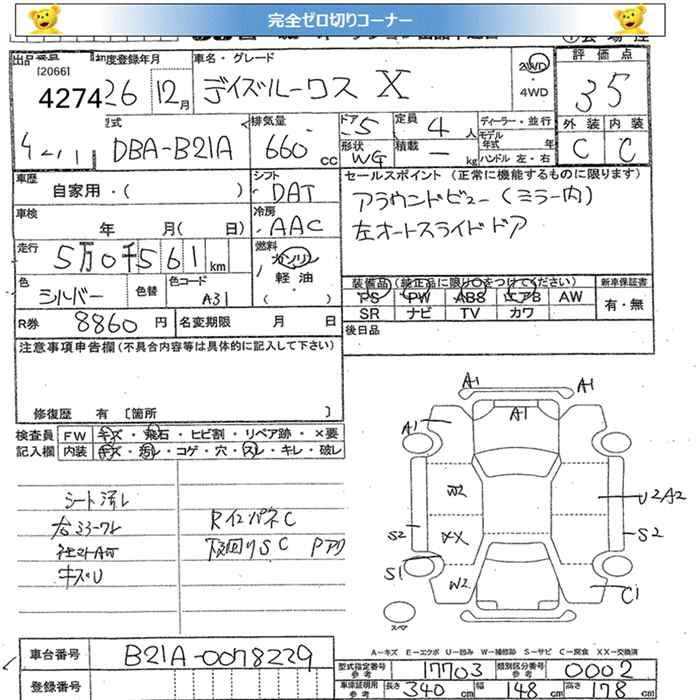 完全ゼロ切りコーナー
出品番号 初度登録年月 車名・グレード 評価点
[2066]
4274 26 12月 デイズルークス X 2WD ・ 4WD 35
型式 排気量 ドア 5 定員 4人 ディーラー・並行 外装 内装
DBA-B21A 660cc 形状 WG 積載 ー kg モデル年式 年 ハンドル 左・右 C C
車歴 シフト セールスポイント (正常に機能するものに限ります)
自家用・( ) DAT アラウンドビュー(ミラー内)
車検 冷房 左オートスライドドア
年 月( 日) AAC
走行 5万0千561km 燃料 ガソリン
軽油
( )
色 シルバー 色替 色コード A31
装備品 (純正品に限り○をつけてください) 新車保証書
PS PW ABS エアB AW 有・無
SR ナビ TV カワ
R券 8860円 名変期限 月 日 後日品
注意事項申告欄(不具合内容等は具体的に記入して下さい)
修復歴 有 [箇所 ]
検査員 FW キズ・飛石・ヒビ割・リペア跡・×要
記入欄 内装 キズ・汚レ・コゲ・穴・スレ・キレ・破レ
シート汚レ
キズU
R インパネC
下廻りSC
A1 A1
A1
A1
W2 U2A2
S2 XX S2
S1 W2 C1
スペア
A-キズ E-エクボ U-凹み W-補修跡 S-サビ C-腐食 XX-交換済
車台番号 B21A-0078229
型式指定番号 参考 17703 類別区分番号 参考 0002
登録番号 車検証明用 参考 長さ 340cm 幅 148cm 高さ 178cm